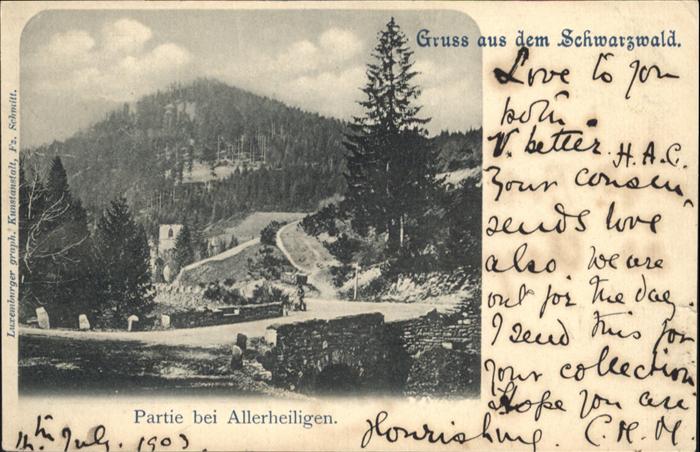 Gruss aus dem Schwarzwald.
Love to you
both.
V. better. H.A.C.
Your cousin
sends love
also. We are
out for the day
I send this for
your collection
Hope you are
flourishing. C.H.M.
Partie bei Allerheiligen.
14th July. 1903.
Luxemburger graph. Kunstanstalt, Fz. Schmitt.